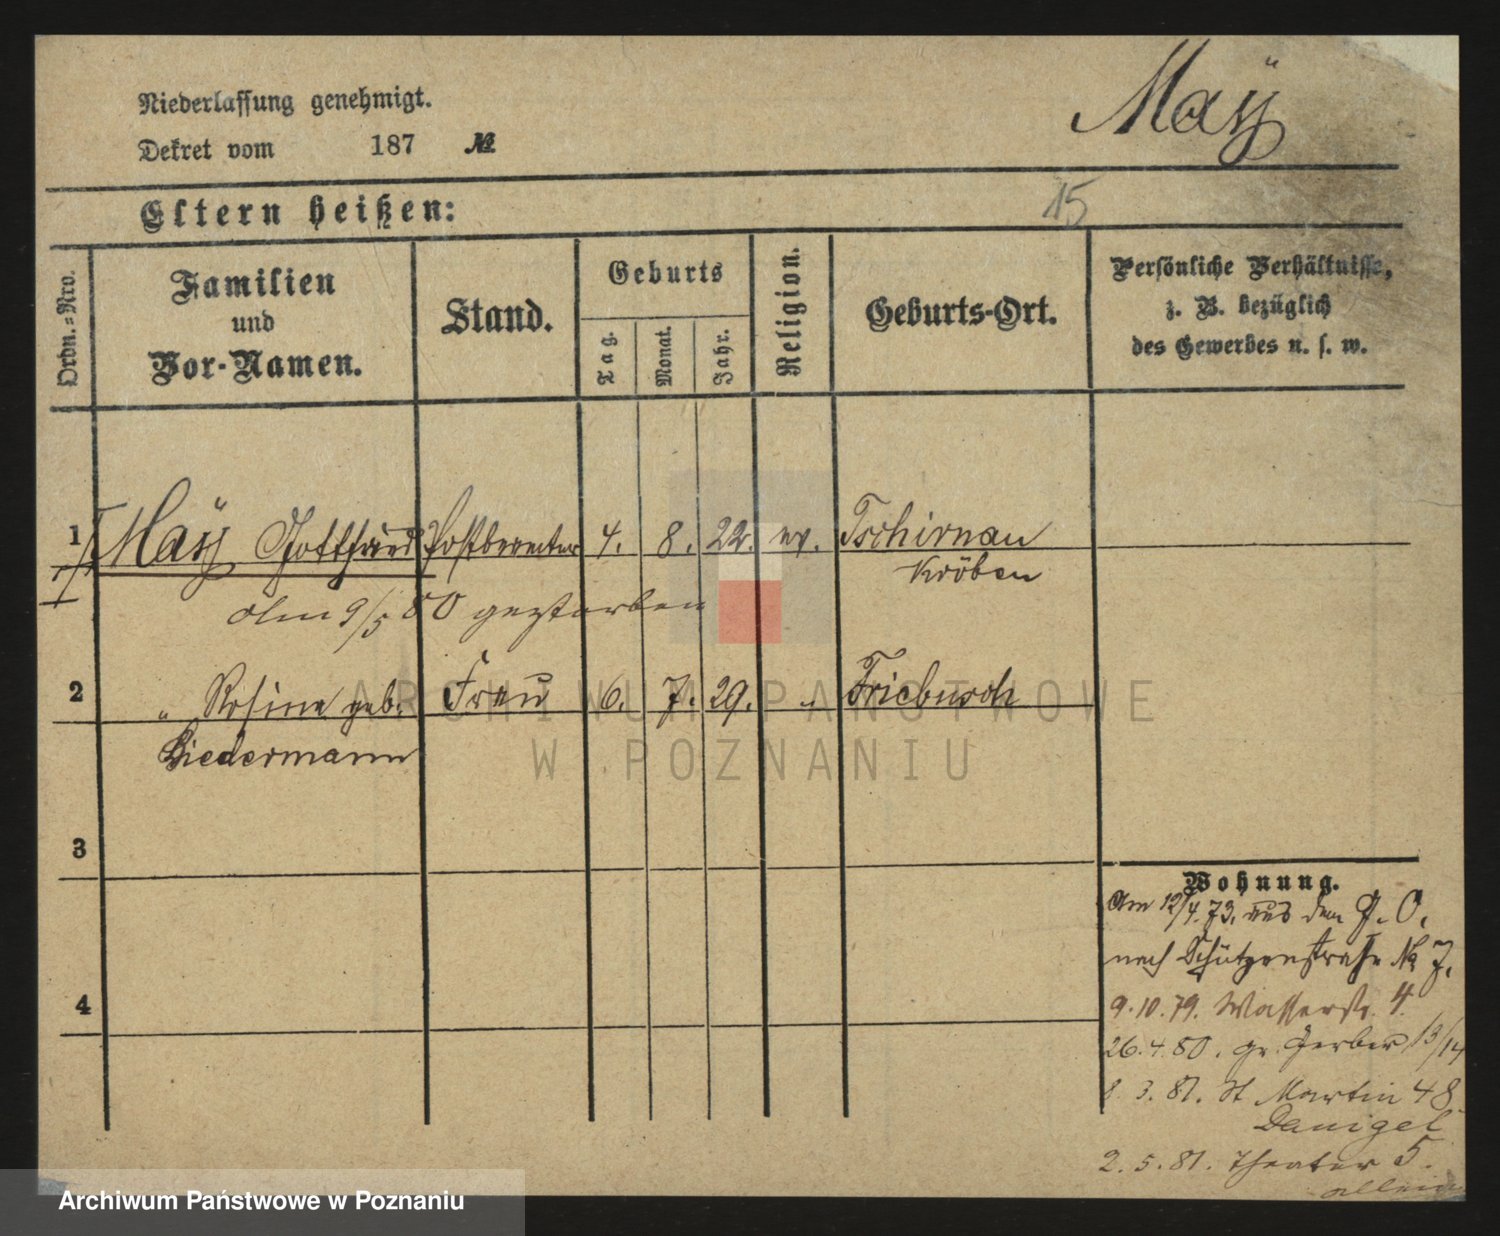 Maÿ
Niederlassung genehmigt.
Dekret vom 187 №
Eltern heißen:
15
Ordn.=Nro.
Familien
und
Vor-Namen.
Stand.
Geburts
Tag.
Monat.
Jahr.
Religion.
Geburts-Ort.
Persönliche Verhältnisse,
z. B. bezüglich
des Gewerbes u. s. w.
1 Maÿ Gottfried 4. 8. 22. ev. Tschirnau
Kröben
am 9/5 80 gestorben
2 " Rosine geb. Frau 6. 7. 29. " Triebusch
Biedermann
3
4
Wohnung.
Am 12/4.73. aus dem P. O.
nach Schützenstraße No 7.
9.10.79. Wasserstr. 4.
26.4.80. gr. Gerber 13/14
8.3.81. St Martin 48
2.5.81. Theater 5.
allein
ARCHIWUM PAŃSTWOWE
W POZNANIU
Archiwum Państwowe w Poznaniu